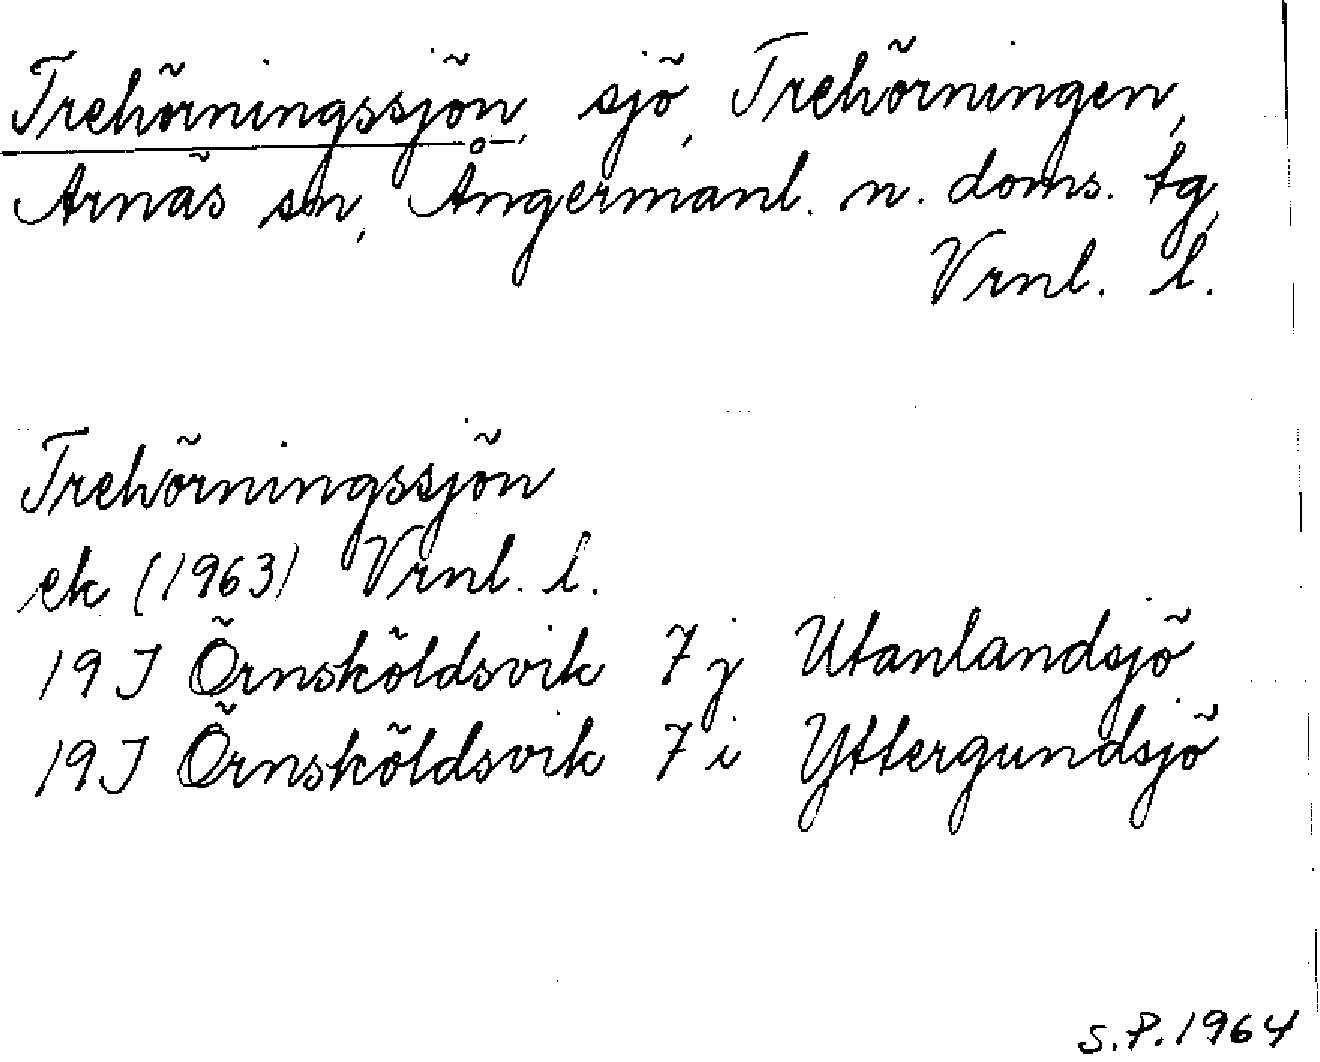 Trehörningssjön, sjö, Trehörningen,
Arnäs sn, Ångermanl. n. doms. tg,
Vrnl. l.
Trehörningssjön
ek (1963) Vrnl. l.
19J Örnsköldsvik 7j Utanlandsjö
19J Örnsköldsvik 7i Yttergundsjö
S.P.1964